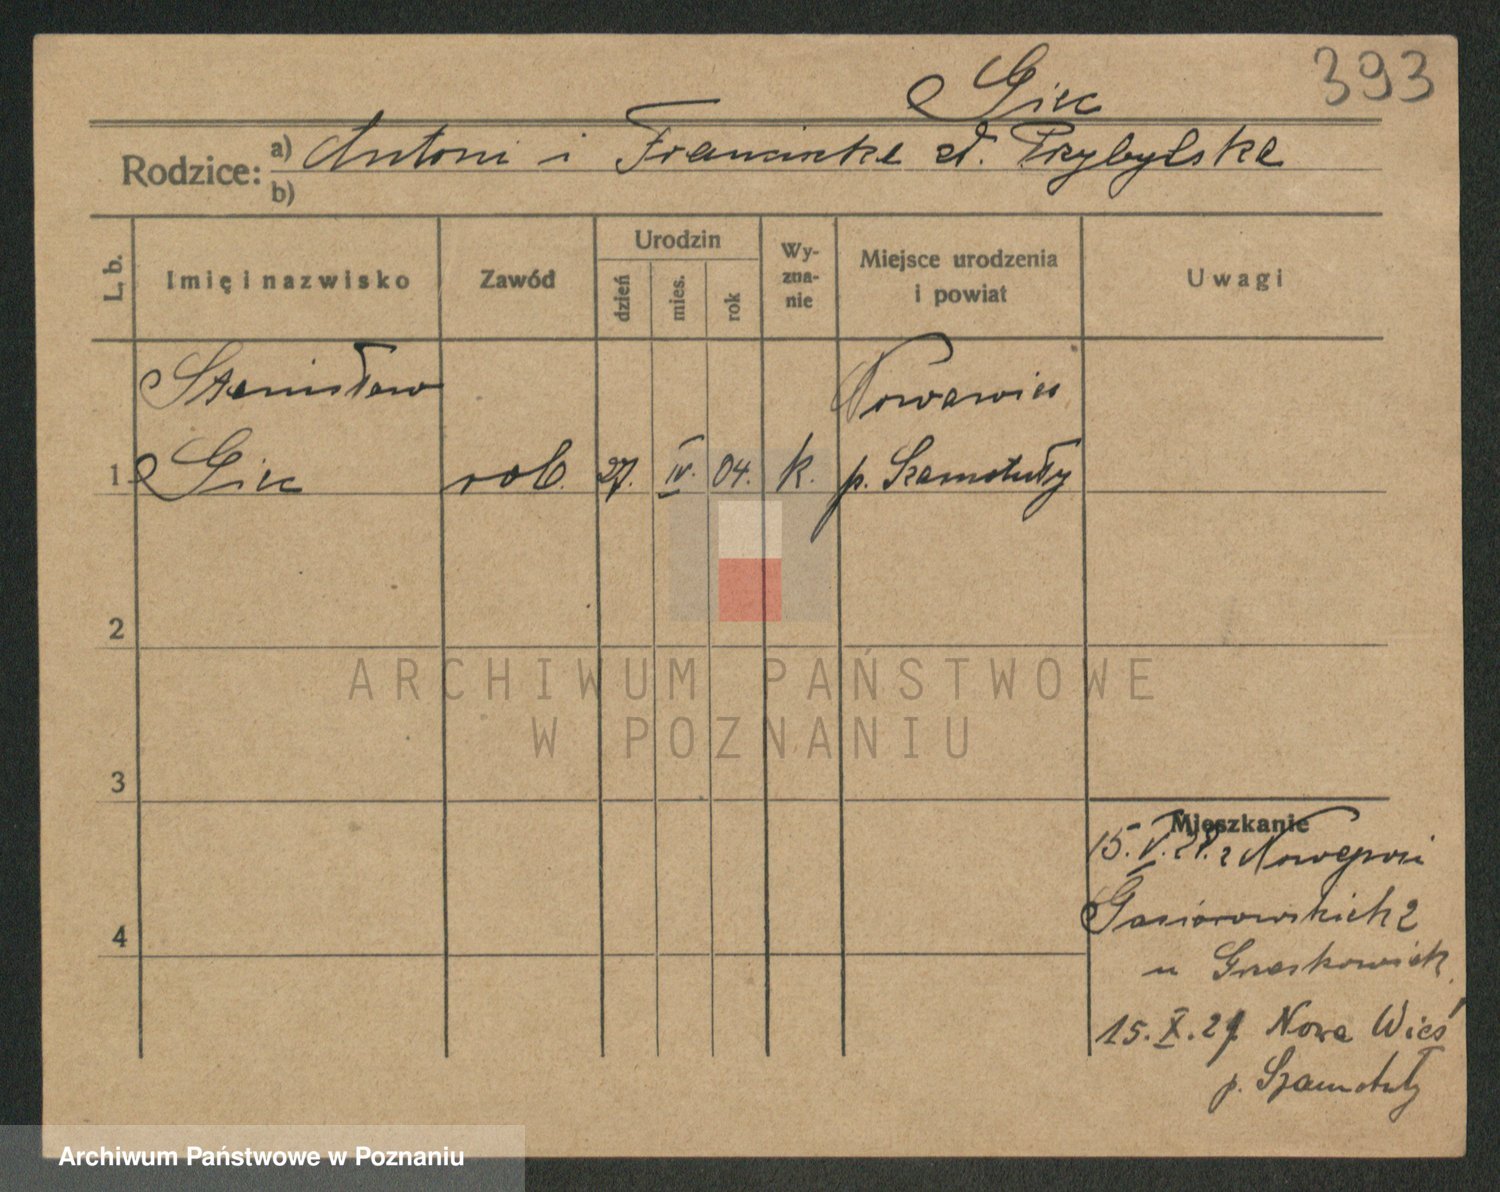 393
Giec
Rodzice: a) Antoni i Franciszka zd. Przybylska
b)
L. b.
Imię i nazwisko
Zawód
Urodzin
dzień
mies.
rok
Wy-
zna-
nie
Miejsce urodzenia
i powiat
Uwagi
Stanisław Nowawieś
1 Giec rob. 27. IV. 04. k. p. Szamotuły
2
ARCHIWUM PAŃSTWOWE
W POZNANIU
3
Mieszkanie
15. V. z Nowejwsi
Gąsiorowskich 2
u
4
15. X. 27 Nowa Wieś
p. Szamotuły
Archiwum Państwowe w Poznaniu